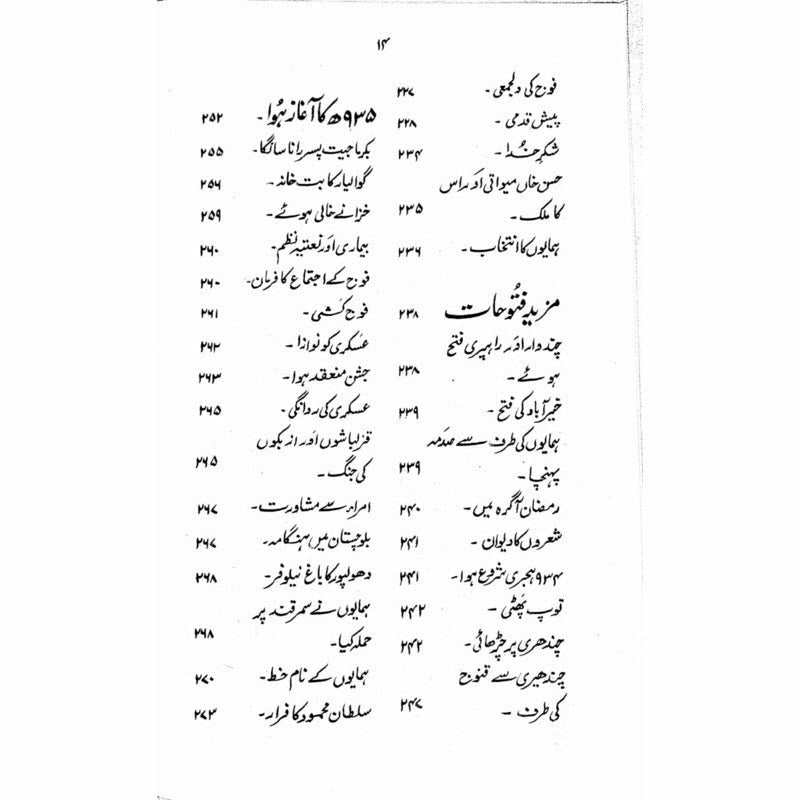 ۱۴
فوج کی دلجمعی - ۲۲۷
پیش قدمی - ۲۲۸
شکرِ خدا - ۲۳۴
حسن خاں میواتی اور اس
کا ملک - ۲۳۵
ہمایوں کا انتخاب - ۲۳۶
مزید فتُوحات ۲۳۸
چندوار اور راپیری فتح
ہوئے - ۲۳۸
خیرآباد کی فتح - ۲۳۹
ہمایوں کی طرف سے صدمہ
پہنچا - ۲۳۹
رمضان آگرہ میں - ۲۴۰
شعروں کا دیوان - ۲۴۱
۹۳۴ ہجری شروع ہوا - ۲۴۱
توپ پھَٹی - ۲۴۲
چندھری پر چڑھائی - ۲۴۲
چندھیری سے قنوج
کی طرف - ۲۴۷
۹۳۵ھ کا آغاز ہُوا - ۲۵۲
بکرماجیت پسر رانا سانگا - ۲۵۵
گوالیار کا بت خانہ - ۲۵۶
خزانے خالی ہوئے - ۲۵۹
بیماری اور نعتیہ نظم - ۲۶۰
فوج کے اجتماع کا فرمان - ۲۶۰
فوج کَشی - ۲۶۱
عسکری کو نوازا - ۲۶۲
جشن منعقد ہوا - ۲۶۳
عسکری کی روانگی - ۲۶۵
قزلباشوں اور ازبکوں
کی جنگ - ۲۶۵
امراء سے مشاورت - ۲۶۷
بلوچستان میں ہنگامہ - ۲۶۷
دھولپور کا باغ نیلوفر - ۲۶۸
ہمایوں نے سمرقند پر
حملہ کیا - ۲۶۸
ہمایوں کے نام خط - ۲۷۰
سلطان محمود کا فرار - ۲۷۳